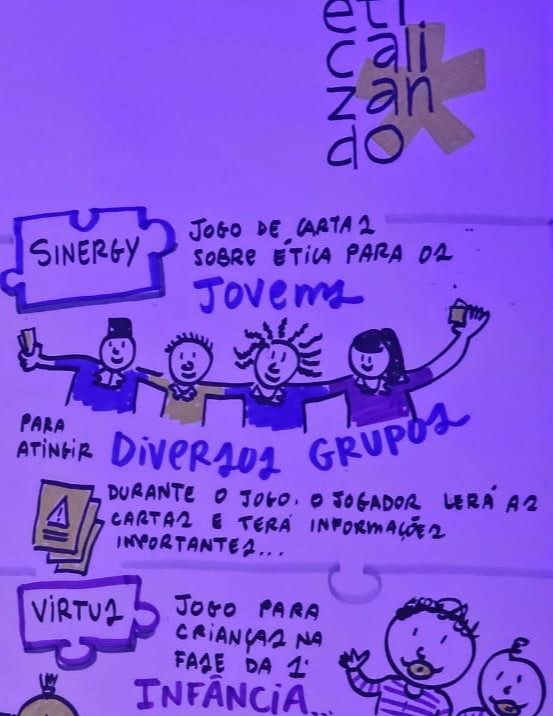 eti
cali
zan
do
SINERGY
JOGO DE CARTAS
SOBRE ÉTICA PARA OS
JOVENS
PARA
ATINGIR DIVERSOS GRUPOS
DURANTE O JOGO, O JOGADOR LERÁ AS
CARTAS E TERÁ INFORMAÇÕES
IMPORTANTES...
VIRTUS
JOGO PARA
CRIANÇAS NA
FASE DA 1ª
INFÂNCIA...